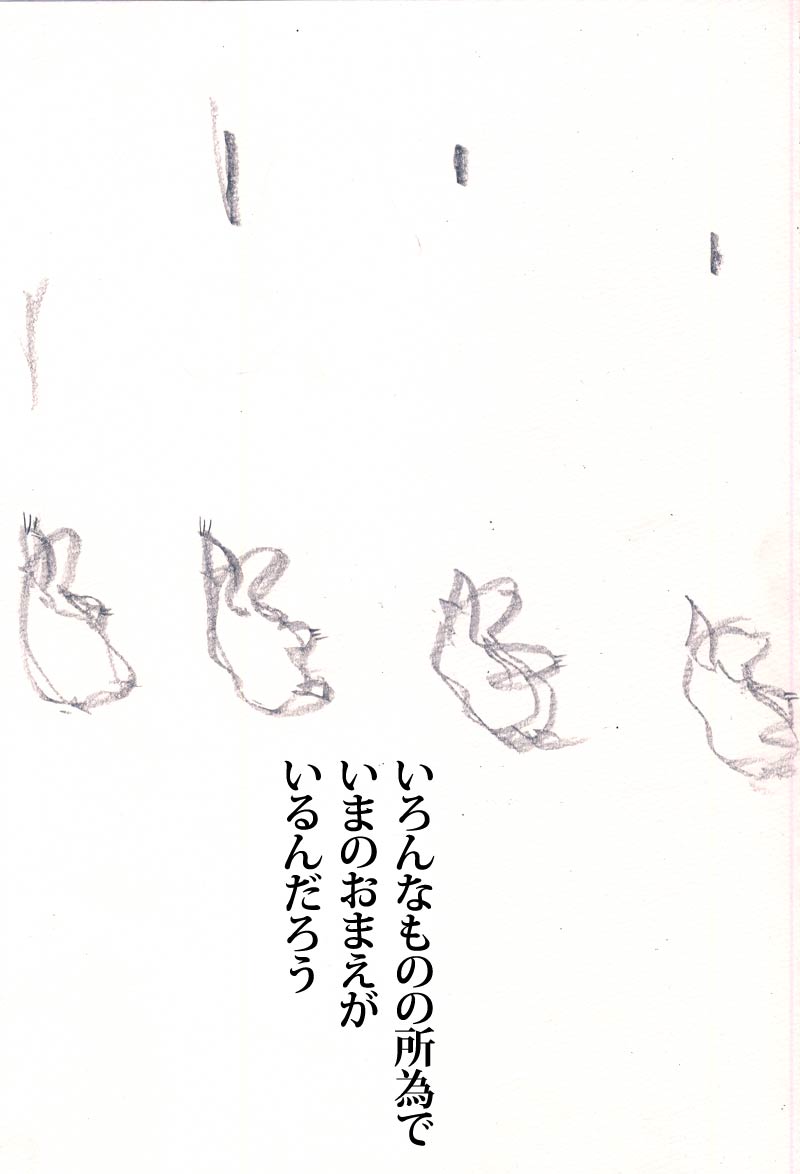 いろんなものの所為で
いまのおまえが
いるんだろう